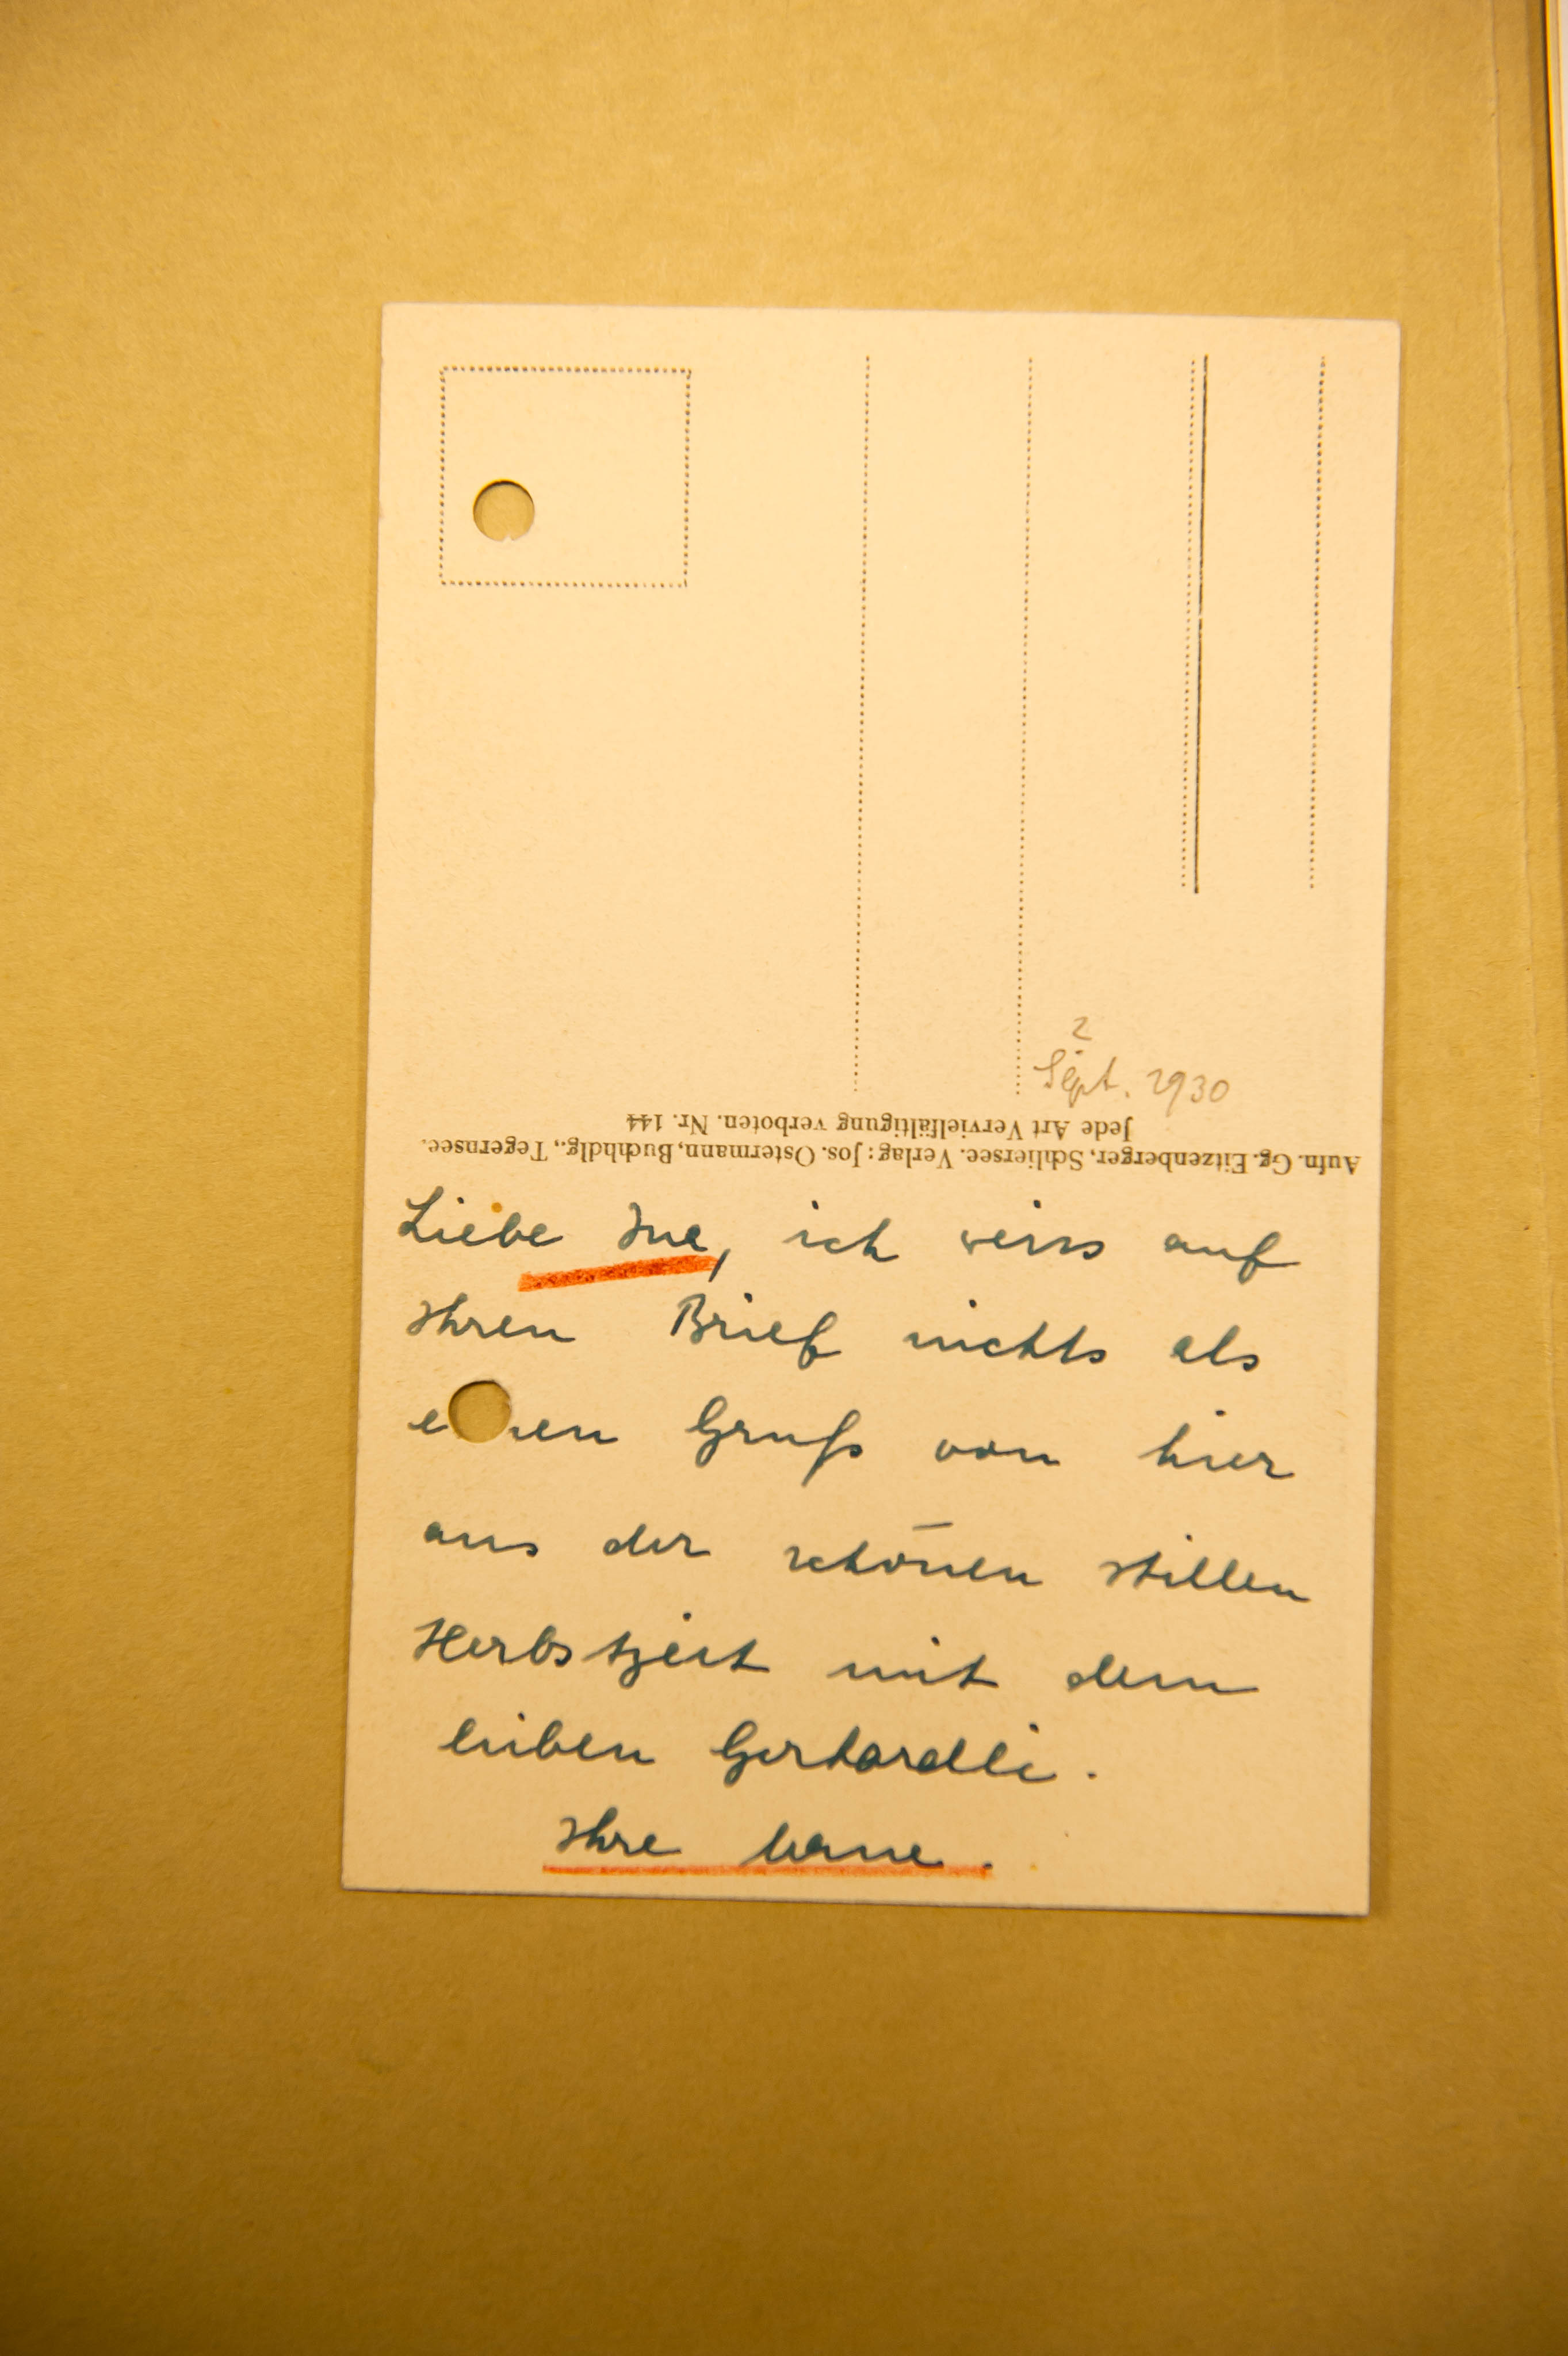 2
Sept. 1930
Jede Art Vervielfältigung verboten. Nr. 144
Aufn. Gg. Eitzenberger, Schliersee. Verlag: Jos. Ostermann, Buchhdlg., Tegernsee.
Liebe Ine, ich weiss auf
Ihren Brief nichts als
e nen Gruß von hier
aus der schönen stillen
Herbstzeit mit dem
lieben Gerhardli.
Ihre